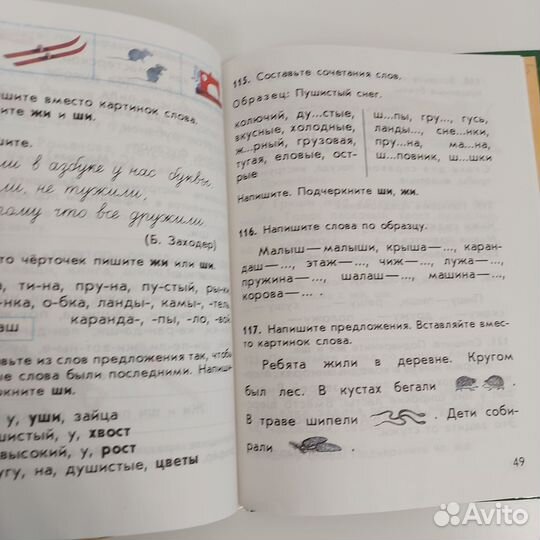 пишите вместо картинок слова.
ите жи и ши.
ишите.
ли в азбуке у нас буквы,
ли, не тужили,
тому что все дружили.
(Б. Заходер)
то чёрточек пишите жи или ши.
а, ти-на, пру-на, пу-стый, ры-ки,
-нка, о-бка, ланды-, камы-, -тель,
аш каранда-, -пы, -ло, -вой
авьте из слов предложения так, чтобы
ые слова были последними. Напиши-
ркните ши.
у, уши, зайца
шистый, у, хвост
высокий, у, рост
угу, на, душистые, цветы
115. Составьте сочетания слов.
Образец: Пушистый снег.
колючий, ду...стые,
вкусные, холодные,
ж...рный, грузовая,
тугая, еловые, ост-
рые
ш...пы, гру..., гусь,
ланды..., сне...нки,
пру...на, ма...на,
ш...повник, ш...шки
Напишите. Подчеркните ши, жи.
116. Напишите слова по образцу.
Малыш — малыши, крыша — ..., каран-
даш — ..., этаж — ..., чиж — ..., лужа — ...,
пружина — ..., шалаш — ..., машина — ...,
корова — ... .
117. Напишите предложения. Вставляйте вмес-
то картинок слова.
Ребята жили в деревне. Кругом
был лес. В кустах бегали .
В траве шипели . Дети соби-
рали .
49
Avito